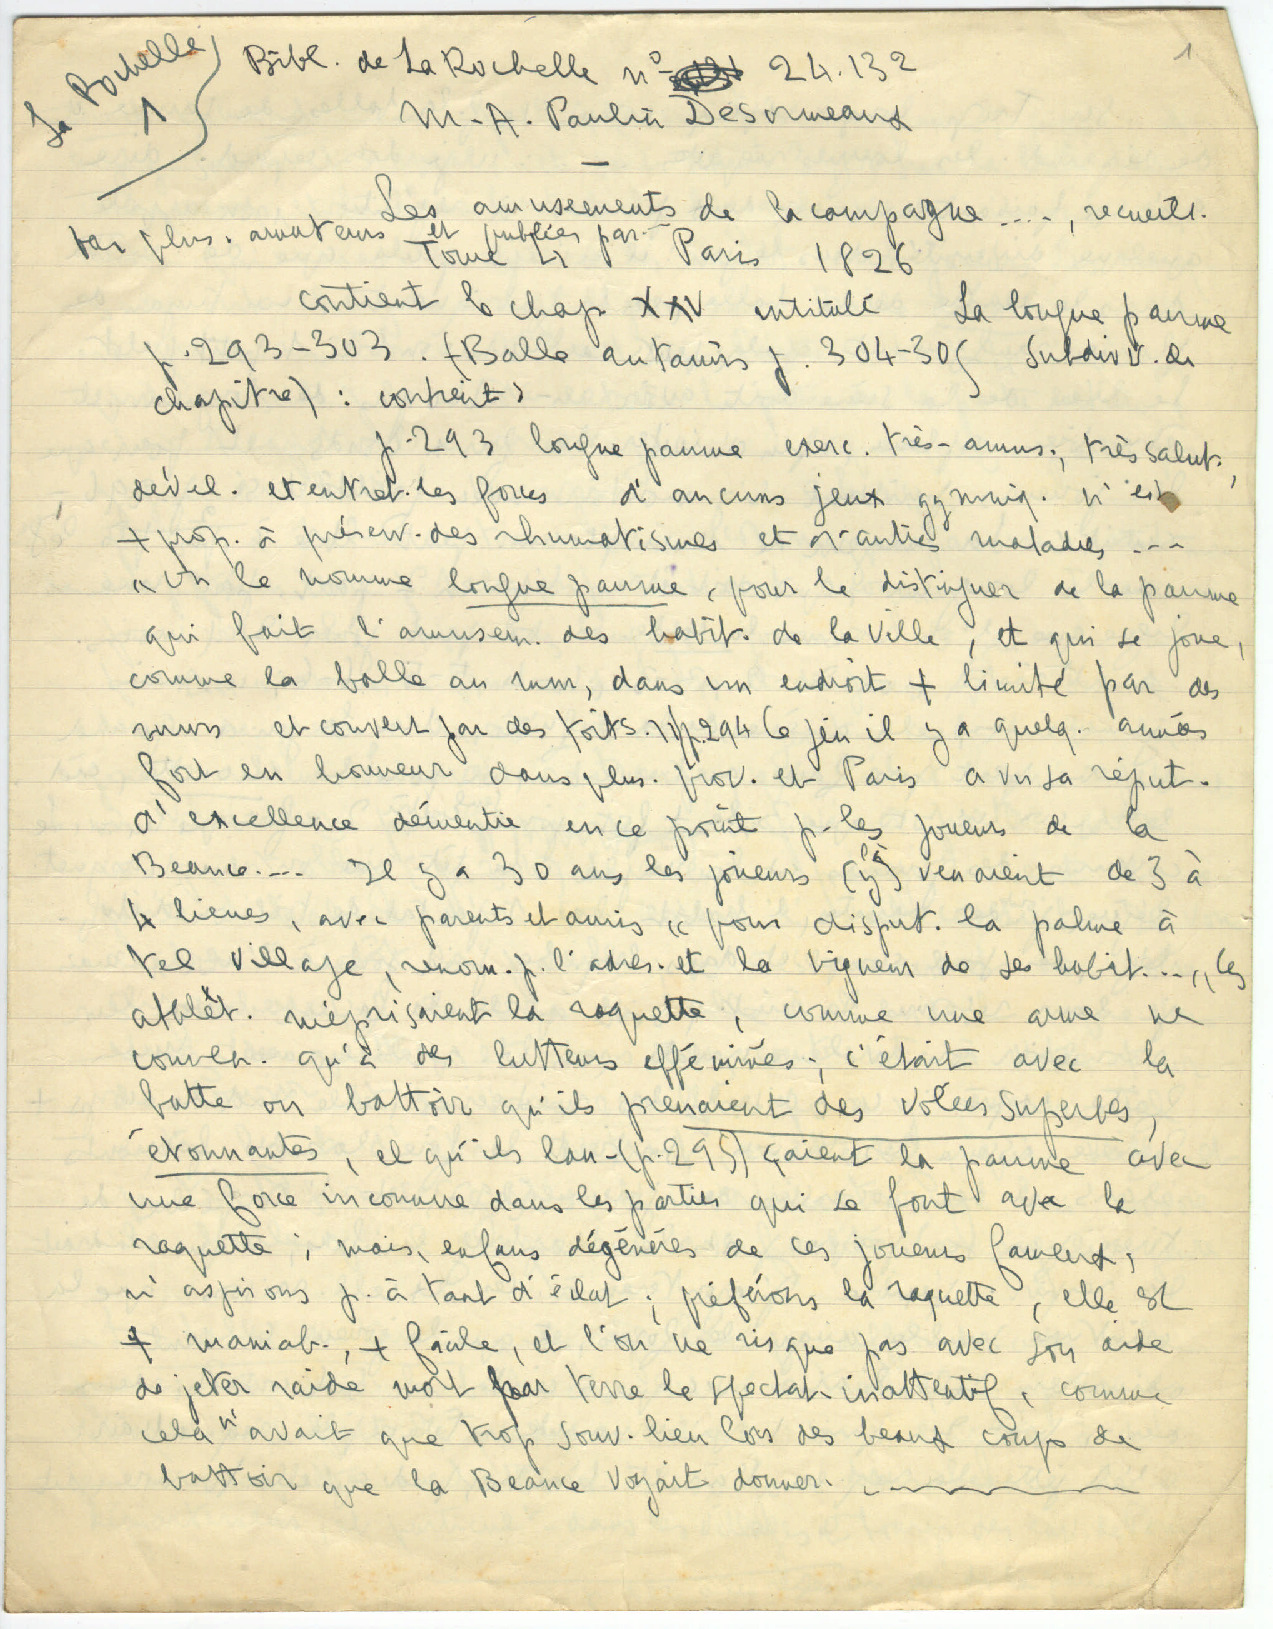 La Rochelle 1
1
Bibl. de La Rochelle n° 24.132
M-A. Paulin Desormeaux
Les amusements de la campagne ...., recueill.
par plus. amateurs et publiées par
Tome 4 Paris 1826
contient le chap XXV intitulé La longue paume
p. 293-303. (Balle au tamis p. 304-305 subdiv. du
chapitre) : contient
p. 293 longue paume exerc. très-amus., très salut.,
dével. et entret. les forces d'aucuns jeux gymniq. n'est
+ prop. à préserv. des rhumatismes et d'autres maladies ---
« On le nomme longue paume, pour le distinguer de la paume
qui fait l'amusem. des habit. de la ville, et qui se joue,
comme la balle au mur, dans un endroit + limité par des
murs et couvert par des toits. » p. 294 Ce jeu il y a quelq. années
fort en honneur dans plus. prov. et Paris a vu sa réput.
d'excellence démentie en ce point p. les joueurs de la
Beauce.... Il y a 30 ans les joueurs venaient de 3 à
4 lieues, avec parents et amis « pour disput. la palme à
tel village, renom. p. l'adres. et la vigueur de ses habit. ... ,, Ces
athlèt. méprisaient la raquette, comme une arme ne
conven. qu'à des lutteurs efféminés ; c'était avec la
batte ou battoir qu'ils prenaient des volées superbes,
étonnantes, et qu'ils lan-(p. 295) çaient la paume avec
une force inconnue dans les parties qui se font avec la
raquette ; mais, enfans dégénérés de ces joueurs fameux,
n'aspirons p. à tant d'éclat ; préférons la raquette, elle est
+ maniab., + facile, et l'on ne risque pas avec son aide
de jeter raide mort par terre le spectat. inattentif, comme
cela n'avait que trop souv. lieu lors des beaux coups de
battoir que la Beauce voyait donner.